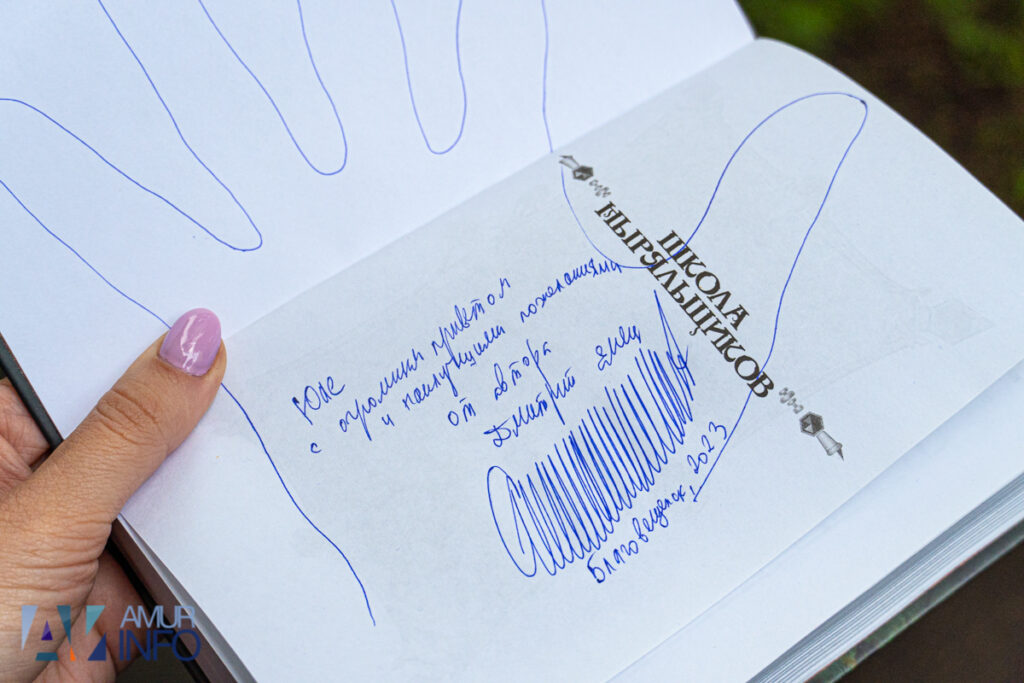 ШКОЛА
НЫРЯЛЬЩИКОВ
Юле
с огромным приветом
и наилучшими пожеланиями
от автора
Дмитрий Емец
Благовещенск, 2023
AMUR
INFO